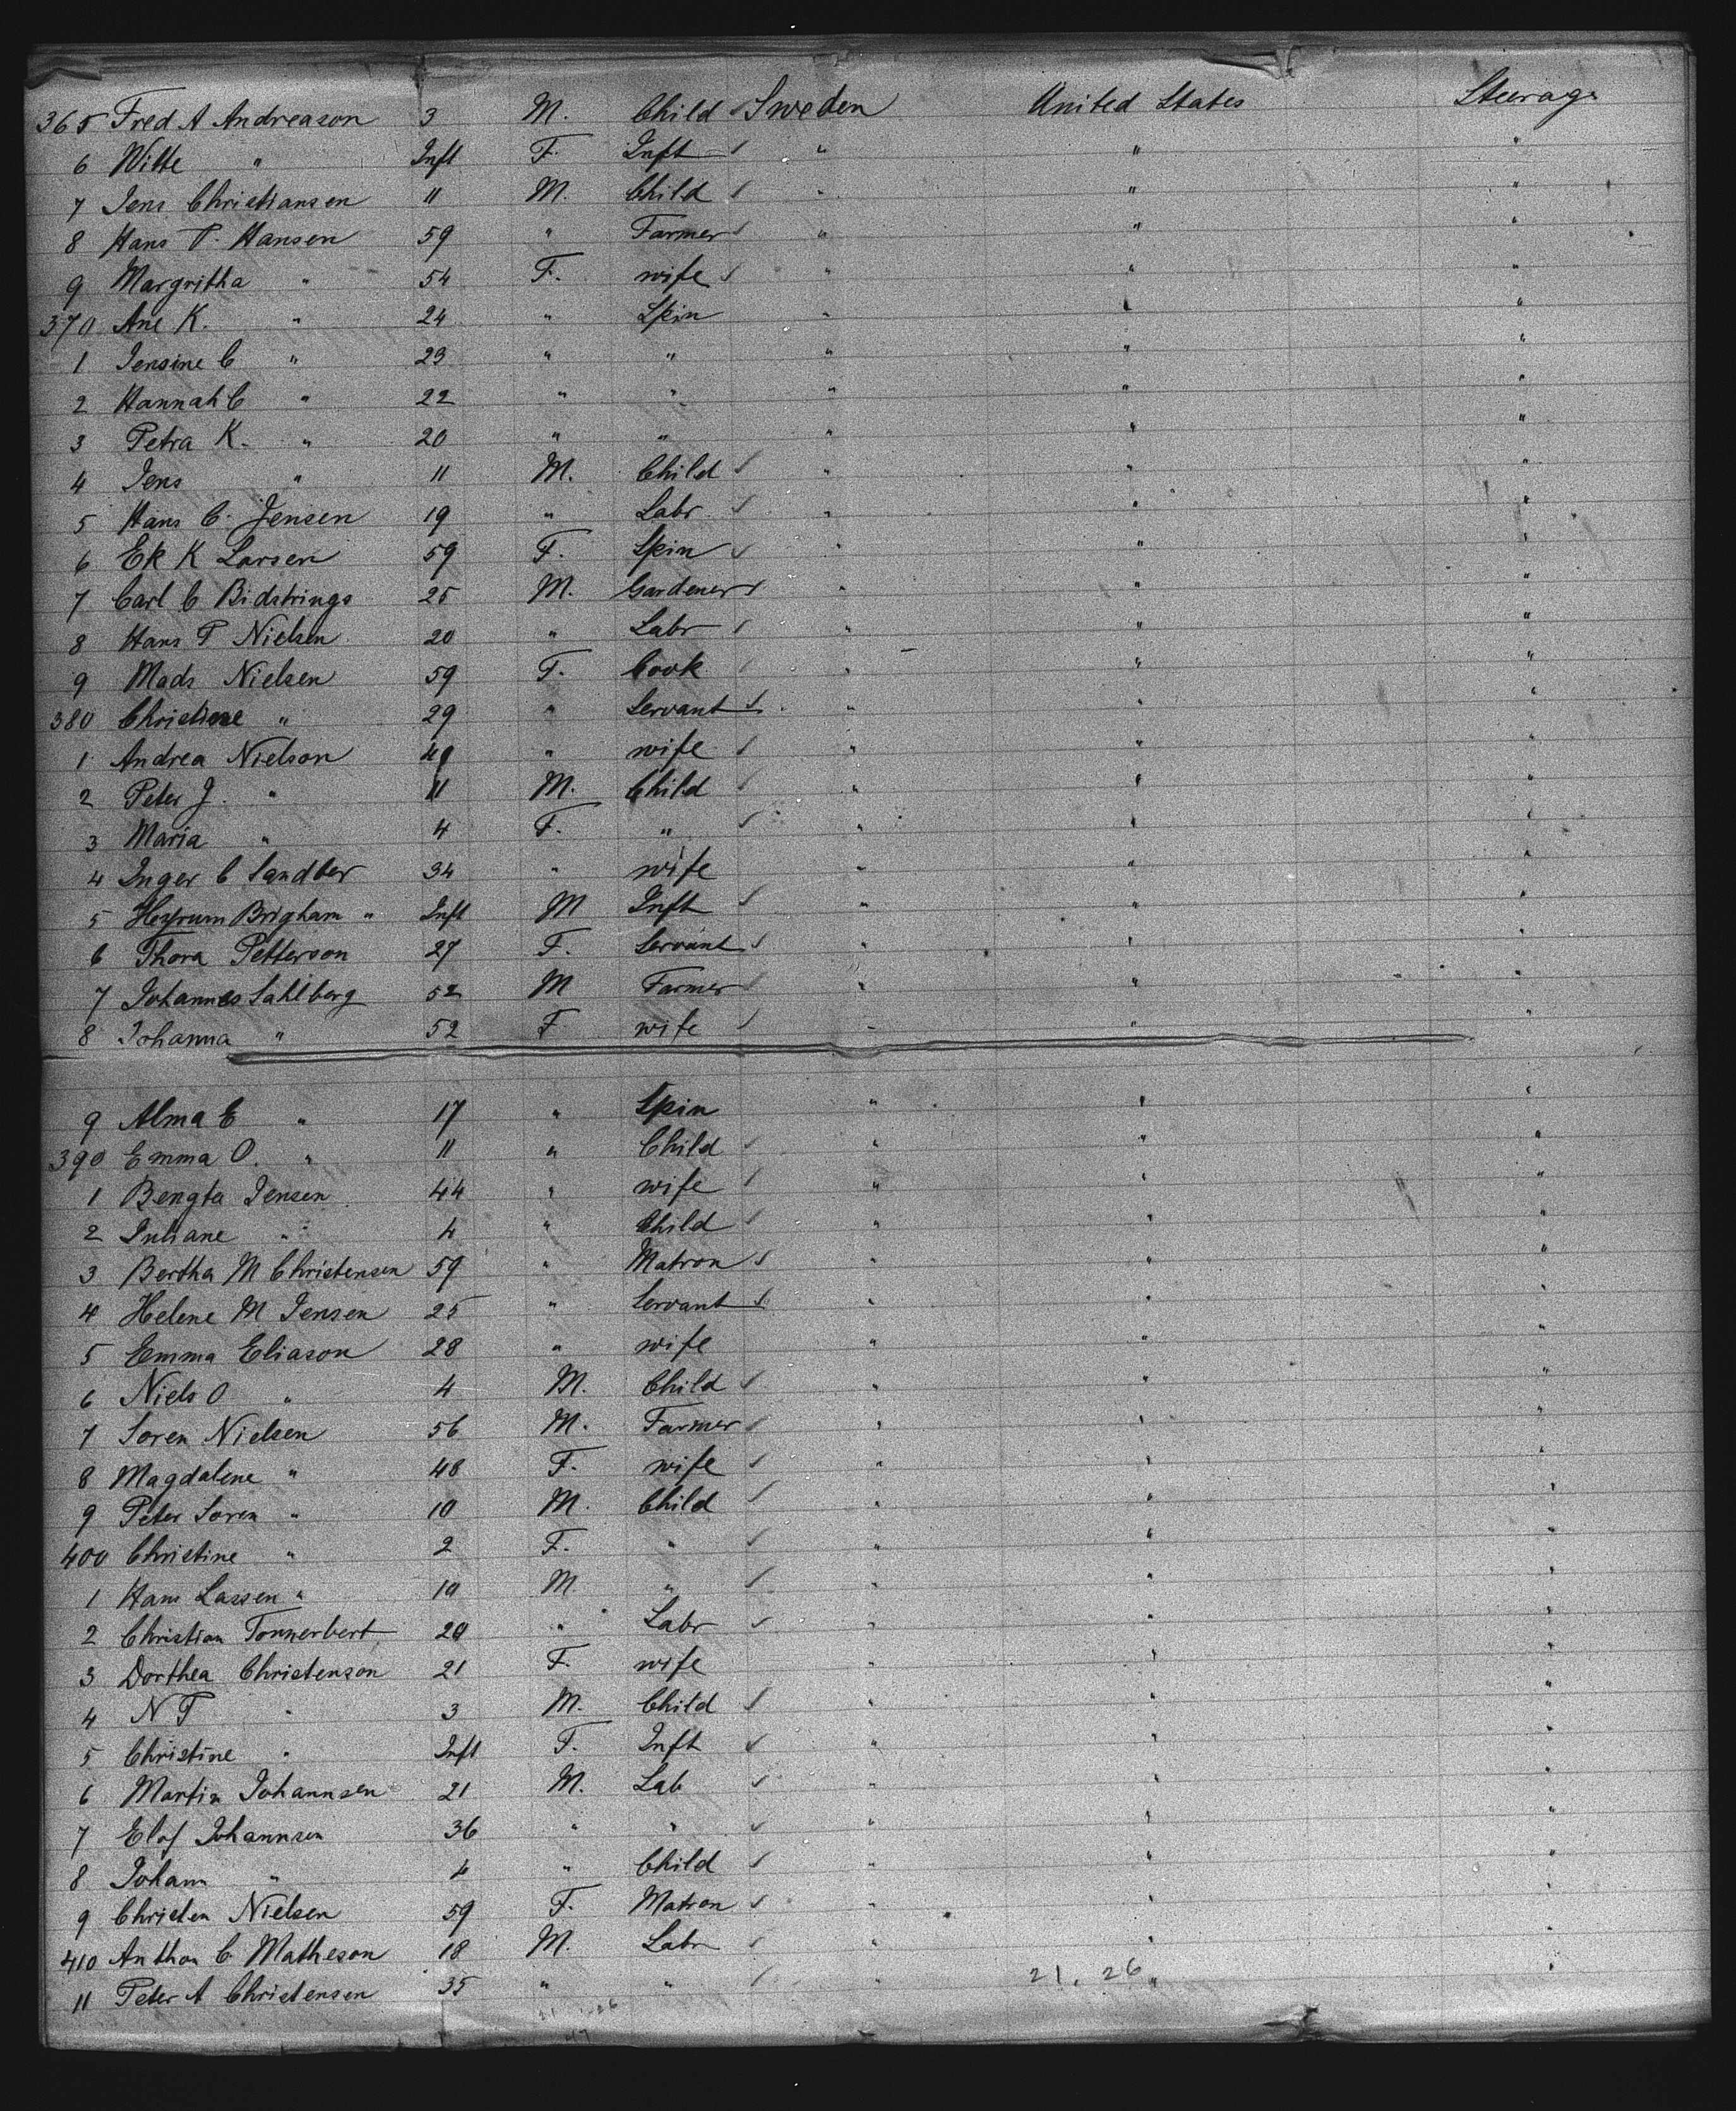 365 Fred A Andreason 3 M. Child Sweden United States Steerage
6 Witte " Inft F. Inft " " "
7 Jens Christiansen 11 M. Child " " "
8 Hans P. Hansen 59 " Farmer " " "
9 Margritha " 54 F. wife " " "
370 Ane K. " 24 " Spin " " "
1 Jensine C " 23 " " " " "
2 Hannah C " 22 " " " " "
3 Petra K. " 20 " " " " "
4 Jens " 11 M. Child " " "
5 Hans C. Jensen 19 " Labr " " "
6 Ek K Larsen 59 F. Spin " " "
7 Carl C Bidstrings 25 M. Gardener " " "
8 Hans P Nielsen 20 " Labr " " "
9 Mads Nielsen 59 F. Cook " " "
380 Christiene " 29 " Servant " " "
1 Andrea Nielson 49 " wife " " "
2 Peter J. " 11 M. Child " " "
3 Maria " 4 F. " " " "
4 Inger C Sandber 34 " wife " " "
5 Heyrum Brigham " Inft M Inft " " "
6 Thora Petterson 27 F. Servant " " "
7 Johannes Sahlberg 52 M Farmer " " "
8 Johanna " 52 F wife " " "
9 Alma E " 17 " Spin " " "
390 Emma O. " 11 " Child " " "
1 Bengta Jensen 44 " wife " " "
2 Juliane " 4 " Child " " "
3 Bertha M Christensen 59 " Matron " " "
4 Helene M Jensen 25 " Servant " " "
5 Emma Eliason 28 " wife " " "
6 Niels O " 4 M. Child " " "
7 Soren Nielsen 56 M. Farmer " " "
8 Magdalene " 48 F. wife " " "
9 Peter Soren " 10 M. Child " " "
400 Christine " 2 F. " " " "
1 Hans Lassen " 10 M " " " "
2 Christian Tonnerbert 20 " Labr " " "
3 Dorthea Christenson 21 F. wife " " "
4 N P " 3 M. Child " " "
5 Christine " Inft F. Inft " " "
6 Martin Johannsen 21 M. Lab " " "
7 Elof Johannsen 36 " " " " "
8 Johann " 4 " Child " " "
9 Christen Nielsen 59 F. Matron " " "
410 Anthon C Matheson 18 M. Labr " " "
11 Peter A Christensen 35 " " " " "
21. 26